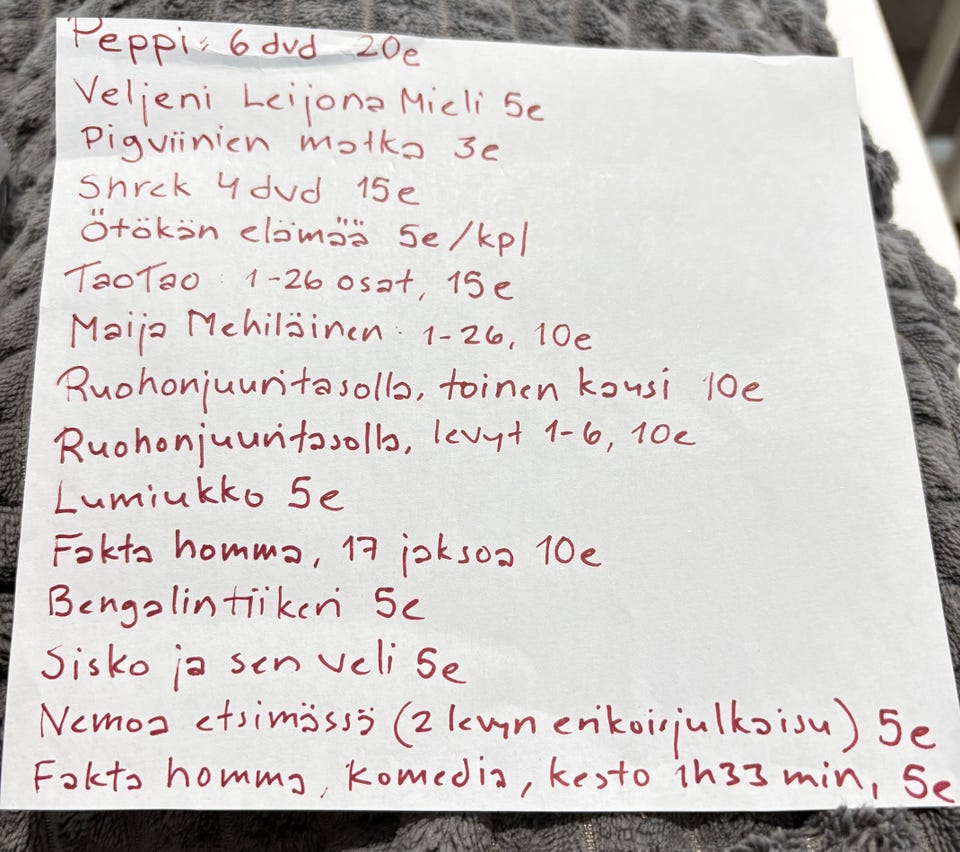 Peppi: 6 dvd 20e
Veljeni Leijona Mieli 5e
Pigviinien matka 3e
Shrek 4 dvd 15e
Ötökän elämää 5e/kpl
TaoTao 1-26 osat, 15e
Maija Mehiläinen: 1-26, 10e
Ruohonjuuritasolla, toinen kausi 10e
Ruohonjuuritasolla, levyt 1-6, 10e
Lumiukko 5e
Fakta homma, 17 jaksoa 10e
Bengalintiikeri 5e
Sisko ja sen veli 5e
Nemoa etsimässä (2 levyn erikoisjulkaisu) 5e
Fakta homma, Komedia, kesto 1h33 min, 5e